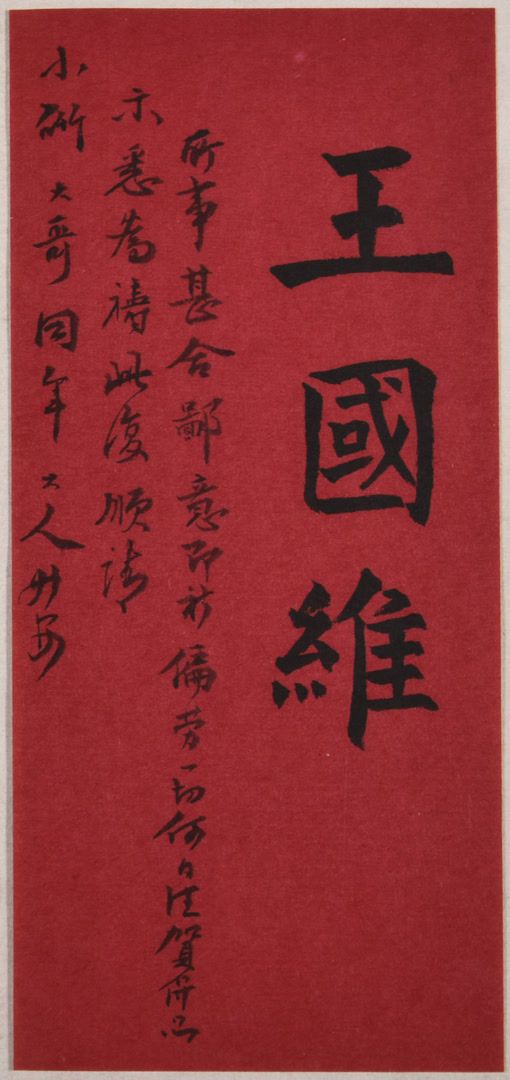 王國維
所事甚合鄙意即祈偏勞一切何日往賀併以
示悉為禱此復順請
小術大哥同年大人升安